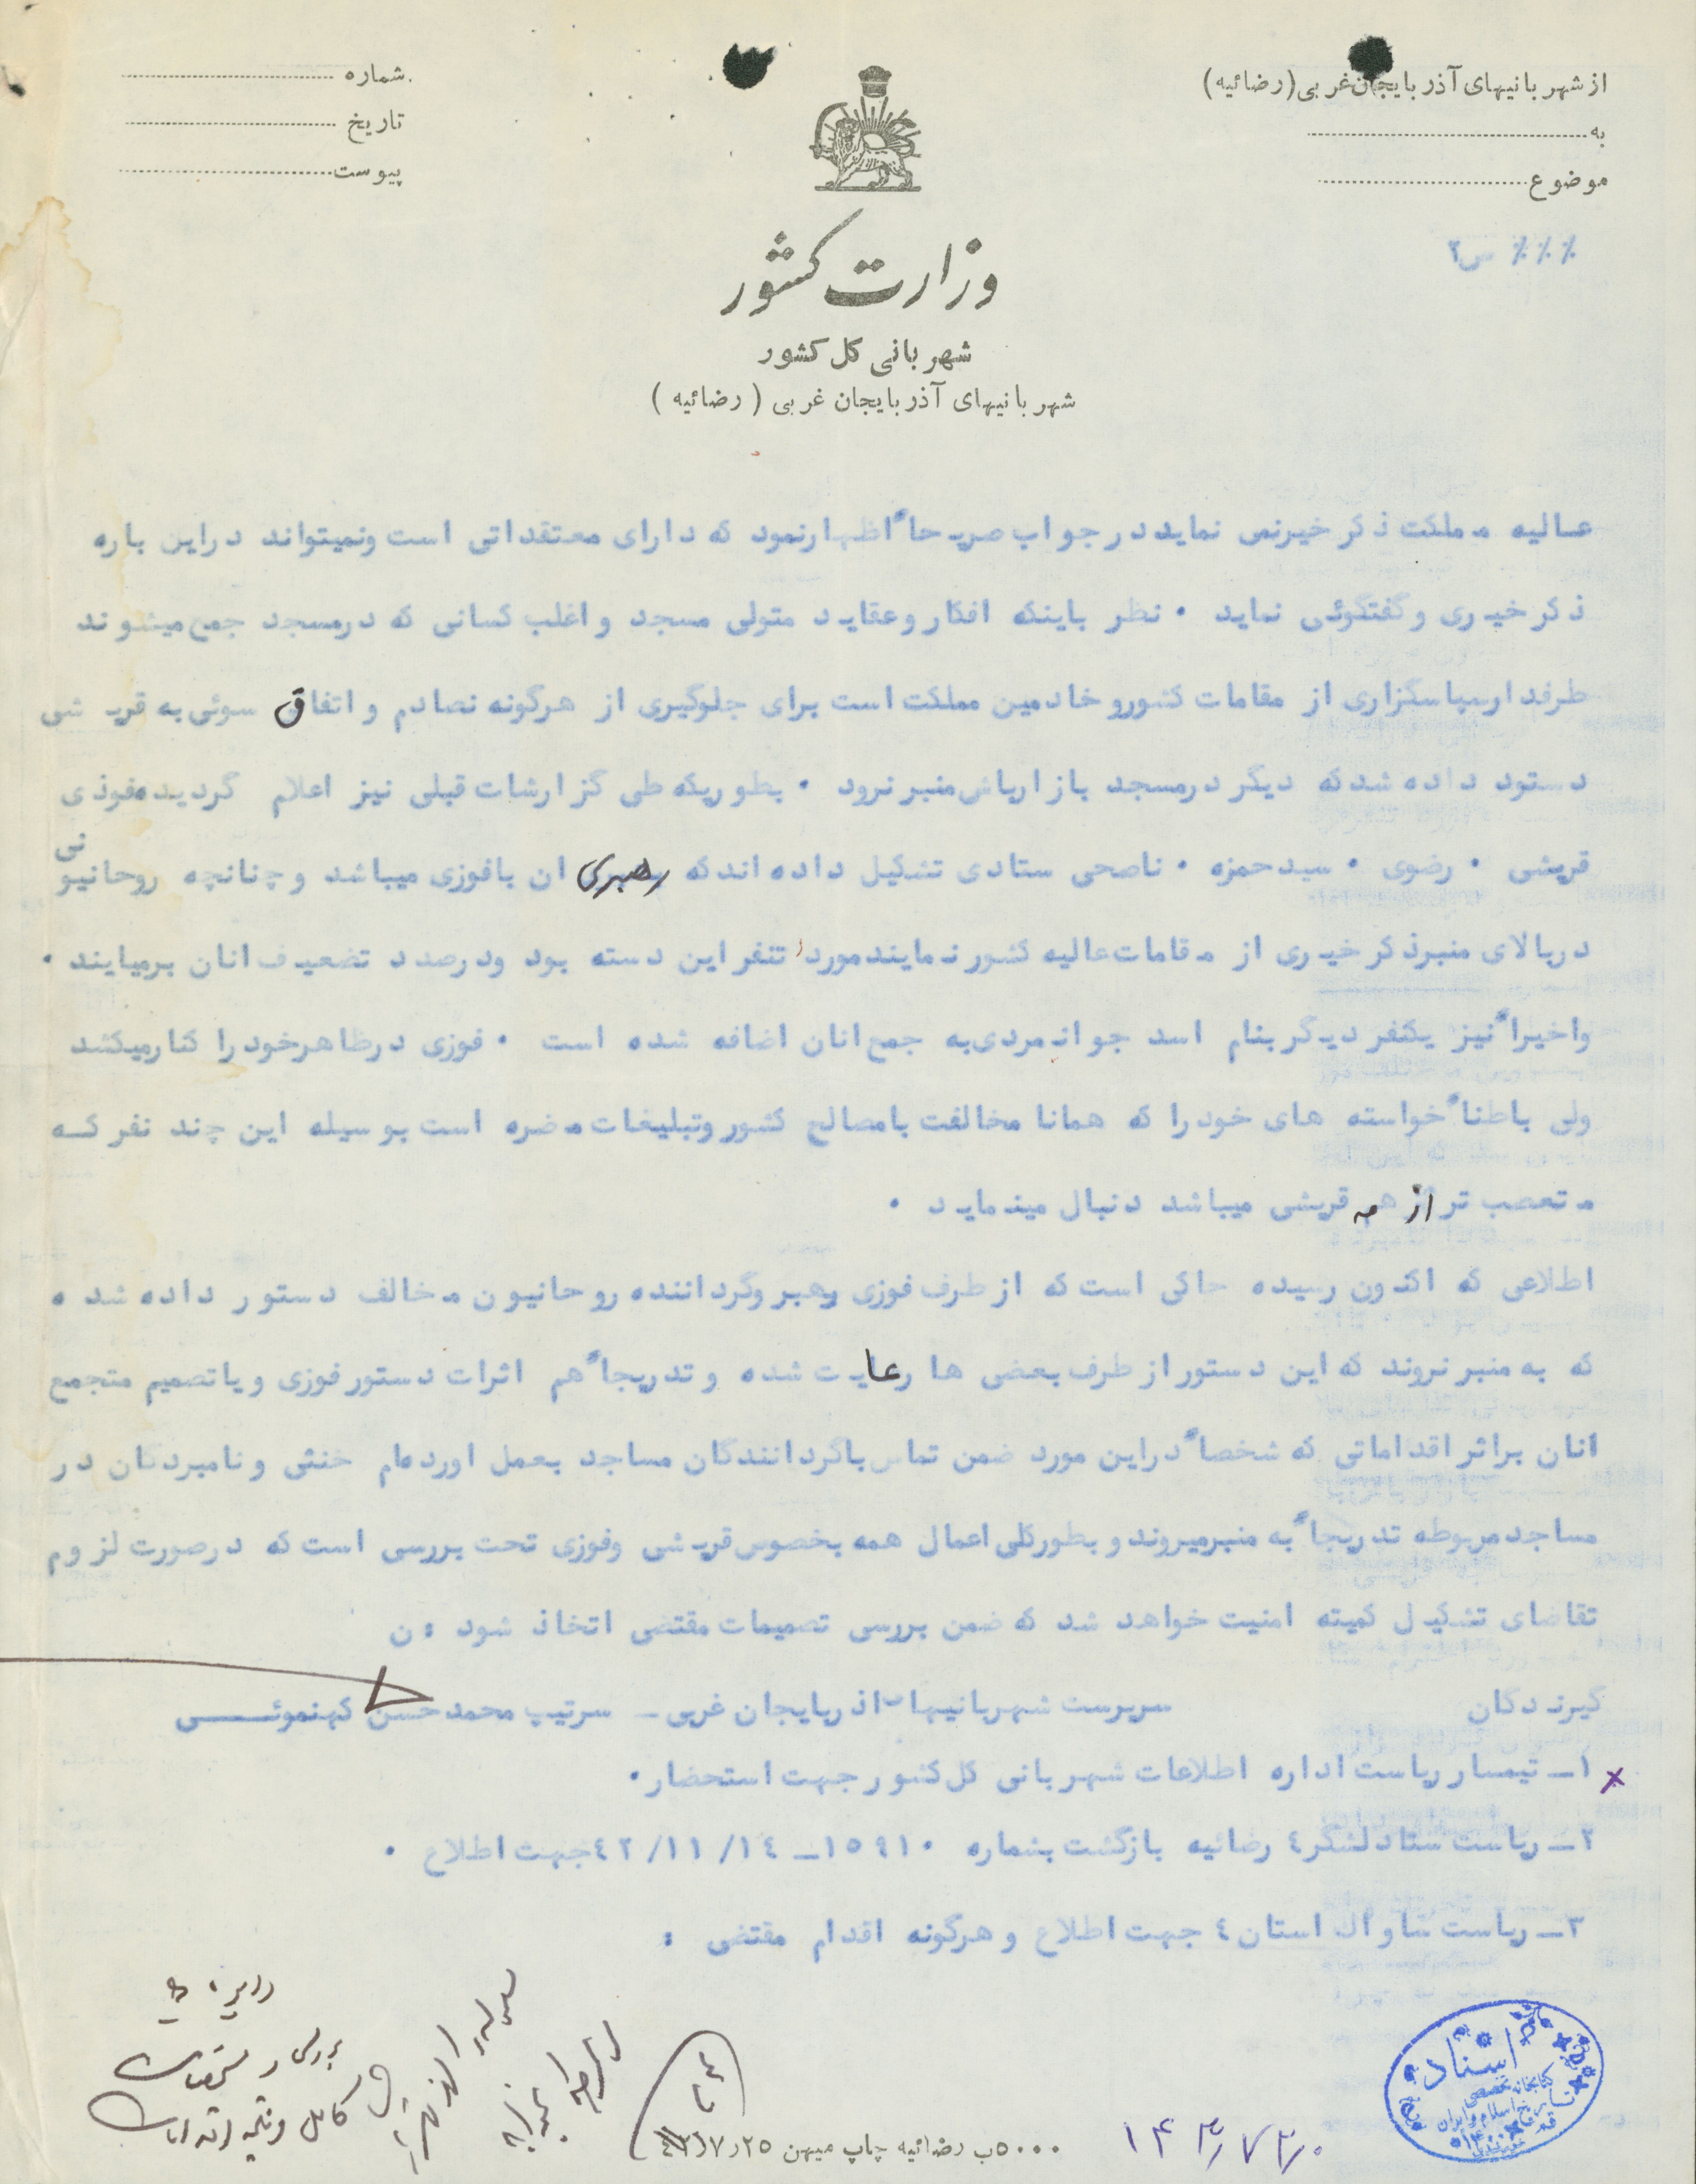 از شهربانیهای آذربایجان غربی (رضائیه)
به
موضوع
شماره
تاریخ
پیوست
٪ ٪ ٪ ص۲
وزارت کشور
شهربانی کل کشور
شهربانیهای آذربایجان غربی ( رضائیه )
عالیه مملکت ذکر خیر نمی نماید در جواب صریحاً اظهار نمود که دارای معتقداتی است و نمیتواند در این باره
ذکر خیری و گفتگوئی نماید ۰ نظر باینکه افکار و عقاید متولی مسجد و اغلب کسانی که در مسجد جمع میشوند
طرفدار سپاسگزاری از مقامات کشور و خادمین مملکت است برای جلوگیری از هرگونه تصادم و اتفاق سوئی به قریشی
دستود داده شد که دیگر در مسجد بازارباش منبر نرود ۰ بطوریکه طی گزارشات قبلی نیز اعلام گردیده فوذی
قریشی ۰ رضوی ۰ سید حمزه ۰ ناصحی ستادی تشکیل داده اند که رهبری ان با فوزی میباشد و چنانچه روحانیونی
در بالای منبر ذکر خیری از مقامات عالیه کشور نمایند مورد تنفر این دسته بود و درصدد تضعیف انان برمیایند ۰
و اخیراً نیز یکنفر دیگر بنام اسد جوانمردی به جمع انان اضافه شده است ۰ فوزی در ظاهر خود را کنار میکشد
ولی باطناً خواسته های خود را که همانا مخالفت با مصالح کشور و تبلیغات مضره است بوسیله این چند نفر که
متعصب تر از همه قریشی میباشد دنبال مینماید ۰
اطلاعی که اکنون رسیده حاکی است که از طرف فوزی رهبر و گرداننده روحانیون مخالف دستور داده شده
که به منبر نروند که این دستور از طرف بعضی ها رعایت شده و تدریجاً هم اثرات دستور فوزی و یا تصمیم متجمع
انان براثر اقداماتی که شخصاً در این مورد ضمن تماس با گردانندگان مساجد بعمل اورده ام خنثی و نامبردگان در
مساجد مربوطه تدریجاً به منبر میروند و بطور کلی اعمال همه بخصوص قریشی و فوزی تحت بررسی است که در صورت لزوم
تقاضای تشکیل کمیته امنیت خواهد شد که ضمن بررسی تصمیمات مقتضی اتخاذ شود :ن
سرپرست شهربانیهای اذربایجان غربی ـ سرتیپ محمد حسن کهنموئی
گیرندگان
۱ـ تیمسار ریاست اداره اطلاعات شهربانی کل کشور جهت استحضار ۰
۲ـ ریاست ستاد لشکر ٤ رضائیه بازگشت بشماره ۱۵۹۱۰ـ ۱٤/ ۱۱/ ٤۲ جهت اطلاع ۰
۳ـ ریاست ساواک استان ٤ جهت اطلاع و هرگونه اقدام مقتضی :
بررسی و تحقیقات
کامل و نتیجه اقدامات
۵۰۰۰ب رضائیه چاپ میهن
۱۴۳٫۷۳٫۰
اسناد
کتابخانه تخصصی
تاریخ اسلام و ایران